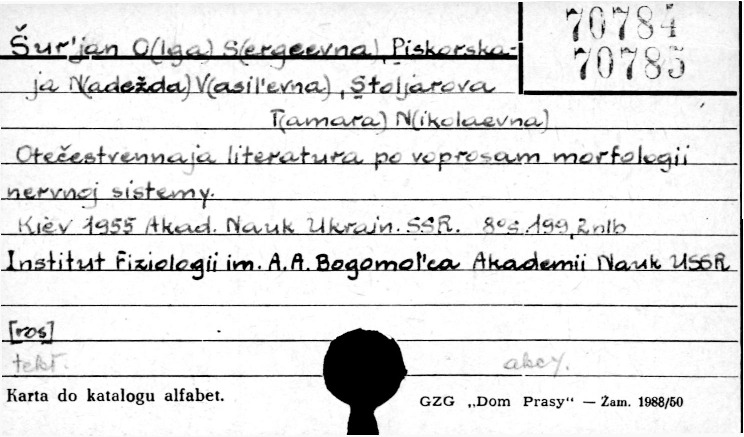 70784
70785
Šur'jan O(lga) S(ergeevna), Piskorska-
ja N(adežda) V(asil'evna), Stoljarova
T(amara) N(ikolaevna)
Otečestvennaja literatura po voprosam morfologii
nervnoj sistemy.
Kiev 1955 Akad. Nauk Ukrain. SSR. 8° s. 199, 2 nlb
Institut Fiziologii im. A.A. Bogomol'ca Akademii Nauk USSR
[ros]
tekt. akcy.
Karta do katalogu alfabet.
GZG „Dom Prasy“ — Zam. 1988/50